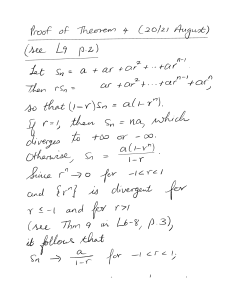 Proof of Theorem 4 (20/21 August)
(see L9 p.2)
Let Sn = a + ar + ar² + ... + arⁿ⁻¹
Then rSn = ar + ar² + ... + arⁿ⁻¹ + arⁿ,
so that (1-r)Sn = a(1-rⁿ).
If r=1, then Sn = na, which
diverges to +∞ or -∞.
Otherwise, Sn = a(1-rⁿ)/1-r.
Since rⁿ → 0 for -1<r<1
and {rⁿ} is divergent for
r ≤ -1 and for r>1
(see Thm 9 in L6-8, p.3),
it follows that
Sn → a/1-r for -1<r<1,